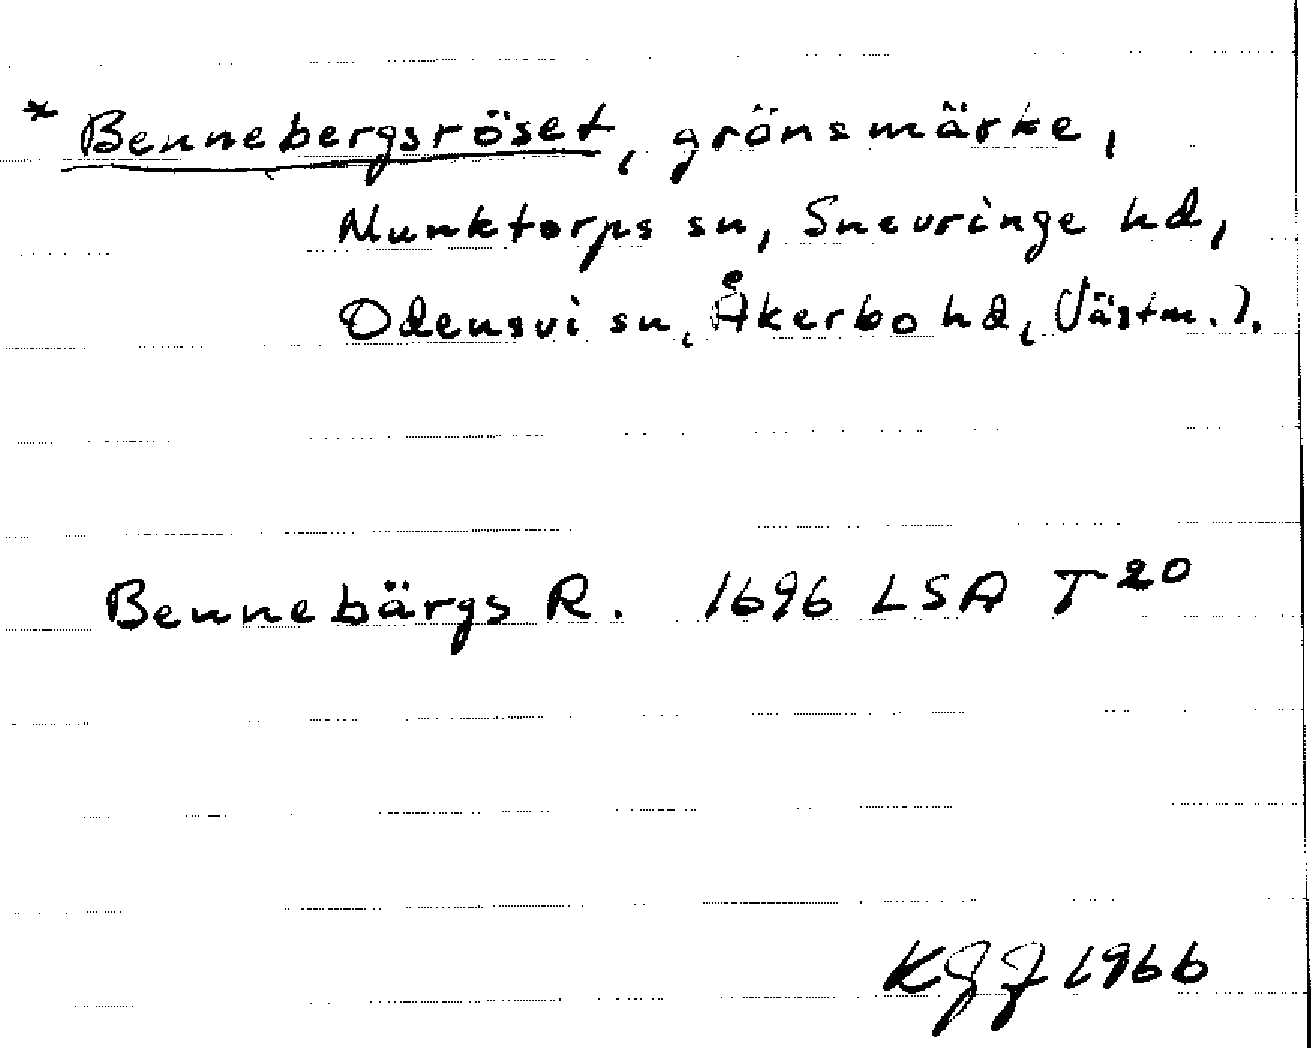 * Bennebergsröset, gränsmärke,
Munktorps sn, Snevringe hd,
Odensvi sn, Åkerbo hd, (Västm.).
Bennebärgs R. 1696 LSA T 20
1966